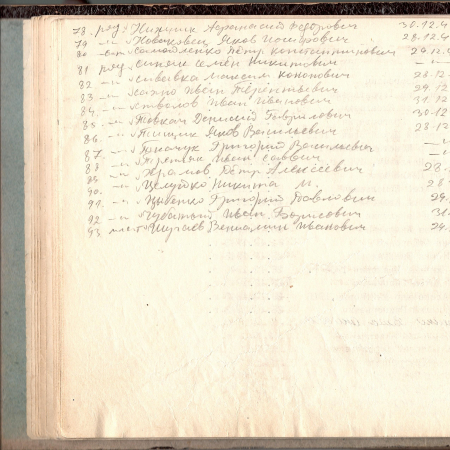 78. ряд. Нищик Афанасий Федорович 30.12.4
79. -"- Новаковец Яков Иосифович 28.12.4
80. Самойленко Пётр Константинович 24.12.4
81 ряд. Синяк Семён Никитович -"-
82. -"- Сивывка Максим Кононович 28.12
83. -"- Иван Терентьевич 29.12
84. -"- Стволов Иван Иванович 31.12
85. -"- Товкач Гаврилович 30.12
86. -"- Тищик Яков Васильевич 28.12
87. -"- Ткачук Григорий Васильевич
88 -"- Третяк Иван Саввич
89. -"- Храмов Пётр Алексеевич 28.
90. -"- Целуйко Никита М. 28
91. -"- Цыбенко Григорий Павлович 29.
92. -"- Чубатый Иван Борисович 31.
93. Шураев Вениамин Иванович 24.